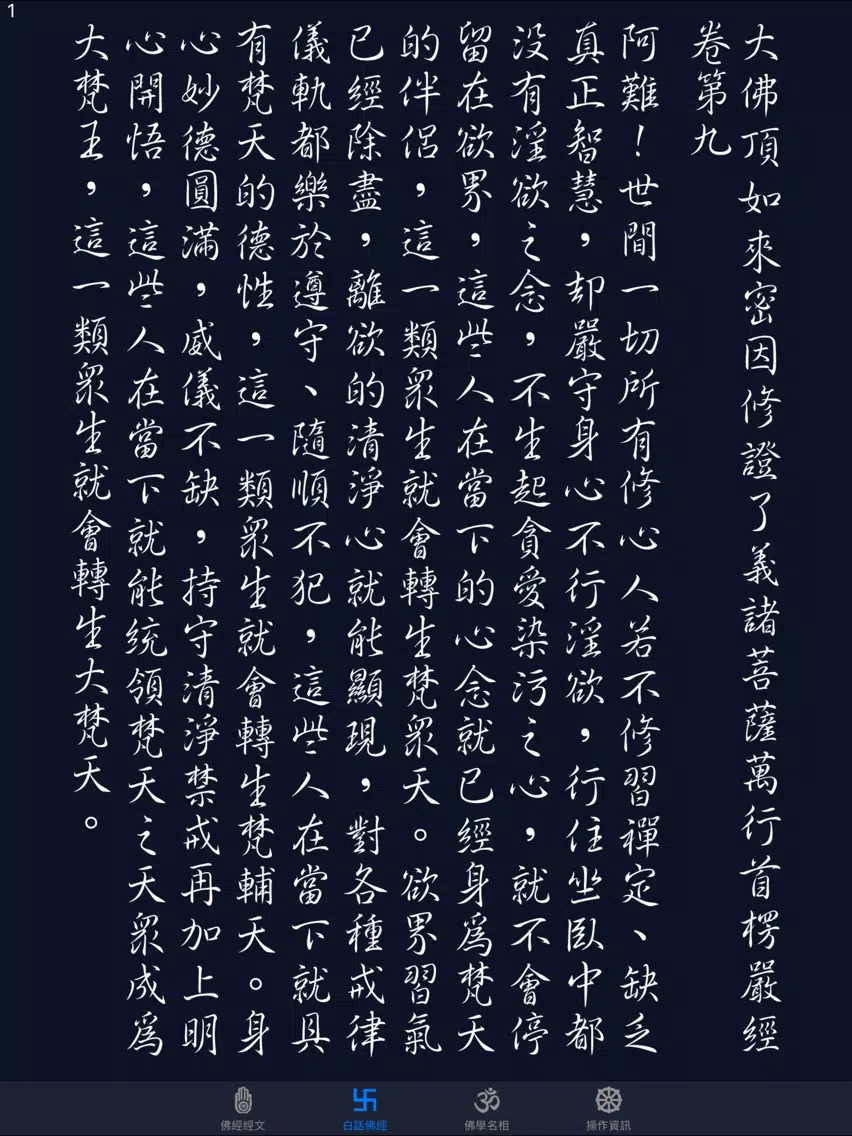 1
大佛頂如來密因修證了義諸菩薩萬行首楞嚴經
卷第九
阿難！世間一切所有修心人若不修習禪定、缺乏
真正智慧，却嚴守身心不行淫欲，行住坐臥中都
没有淫欲之念，不生起貪愛染污之心，就不會停
留在欲界，這些人在當下的心念就已經身爲梵天
的伴侶，這一類眾生就會轉生梵眾天。欲界習氣
已經除盡，離欲的清淨心就能顯現，對各種戒律
儀軌都樂於遵守、隨順不犯，這些人在當下就具
有梵天的德性，這一類眾生就會轉生梵輔天。身
心妙德圓滿，威儀不缺，持守清淨禁戒再加上明
心開悟，這些人在當下就能統領梵天之天眾成爲
大梵王，這一類眾生就會轉生大梵天。
佛經經文
白話佛經
佛學名相
操作資訊